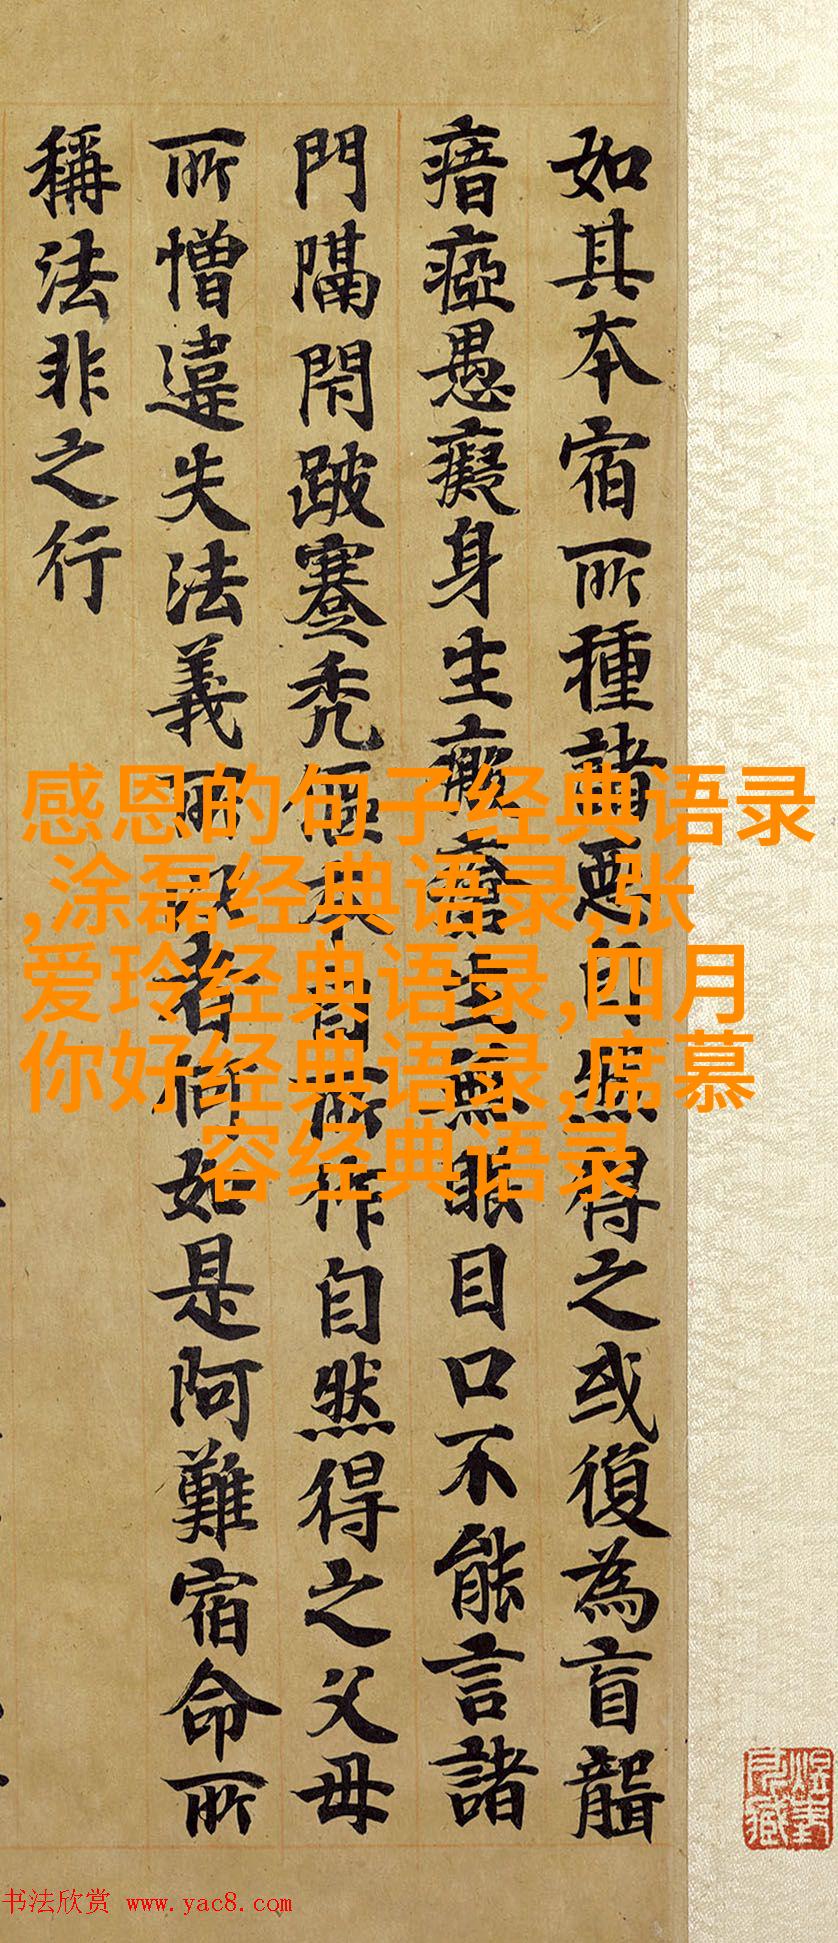 如其本宿所種諸惡自然得之或復為盲聾
瘖瘂愚癡身生癰瘡生無眼目口不能言諸
門隔閇跛蹇禿傴本自所作自然得之父母
所憎違失法義所以者何如是阿難宿命所
稱法非之行
感恩的句子经典语录
,涂磊经典语录,张
爱玲经典语录,四月
你好经典语录,席慕
容经典语录
书法欣赏 www.yac8.com